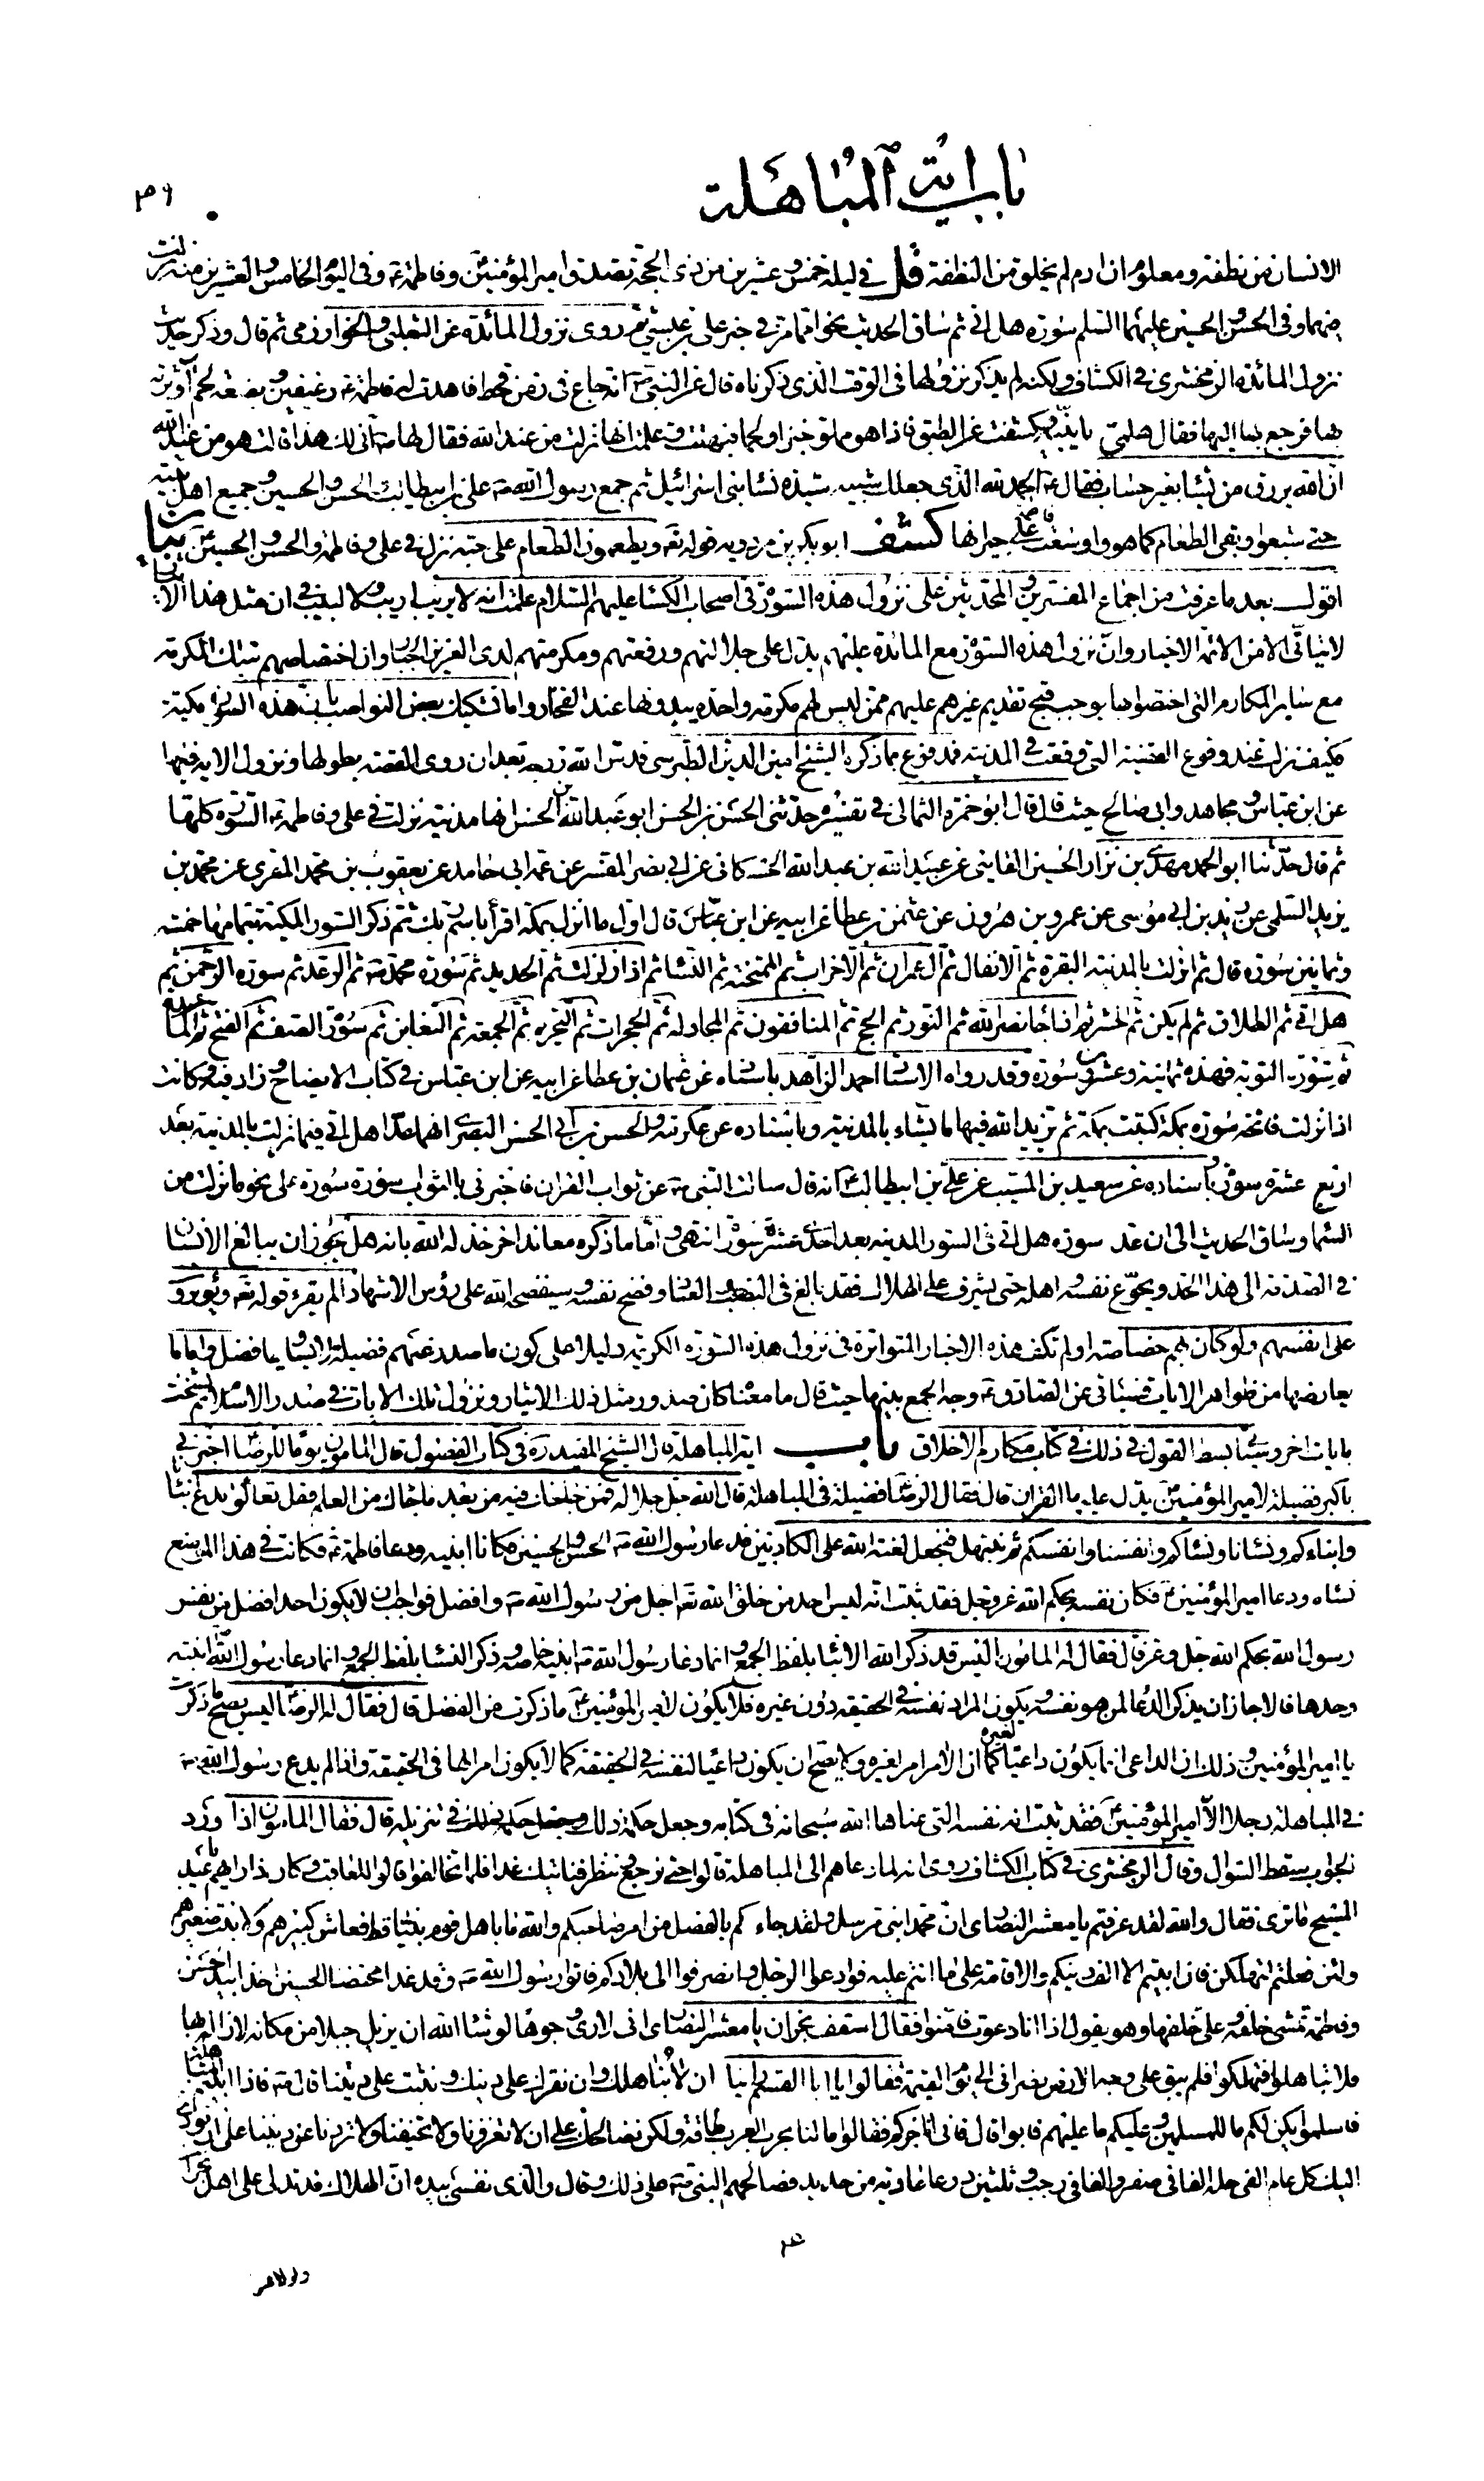 باب اية المباهلة
٣٦
الانسان من نطفة ومعلوم ان ادم لم يخلق من النطفة قل في ليلة خمس وعشرين من ذى الحجة تصدق امير المؤمنين وفاطمة ع وفي اليوم الخامس والعشرين منه نزلت
فيهما وفى الحسن والحسين عليهما السلم سورة هل اتى ثم ساق الحديث نحوا مما مر في خبر على بن عيسى ثم روى نزول المائدة عن الثعلبى والخوارزمى ثم قال وذكر حديث
نزول المائدة الزمخشرى في الكشاف ولكنه لم يذكر نزولها في الوقت الذى ذكرناه قال عن النبى ص انه جاع في زمن قحط فاهدت له فاطمة ع رغيفين وبضعة لحم آثرته
بها فرجع بها اليها فقال هلمى يا بنية وكشفت عن الطبق فاذا هو مملو خبزا ولحما فبهتت وعلمت انها نزلت من عند الله فقال لها ص انى لك هذا قالت هو من عند الله
ان الله يرزق من يشاء بغير حساب فقال ع الحمد لله الذى جعلك شبيهة سيدة نساء بنى اسرائيل ثم جمع رسول الله ص على بن ابيطالب والحسن والحسين وجميع اهل بيته
حتى شبعوا وبقى الطعام كما هو واوسعت فاطمة على جيرانها كشف ابو بكر بن مردويه قوله تع ويطعمون الطعام على حبه نزل في على وفاطمة والحسن والحسين ع بيان
اقول بعد ما عرفت من اجماع المفسرين والمحدثين على نزول هذه السورة في اصحاب الكساء عليهم السلام علمت انه لا يريب اريب ولا لبيب في ان مثل هذا الايثار
لا يتأتى الا من الائمة الاخيار وان نزول هذه السورة مع المائدة عليهم يدل على جلالتهم ورفعتهم ومكرمتهم لدى العزيز الجبار وان اختصاصهم بتلك المكرمة
مع ساير المكارم التى اختصوا بها يوجب قبح تقديم غيرهم عليهم ممن ليس لهم مكرمة واحدة يبدونها عند الفخار واما تشكيك بعض النواصب بان هذه السورة مكية
فكيف نزلت عند وقوع القضية التى وقعت في المدينة فمدفوع بما ذكره الشيخ امين الدين الطبرسى قدس الله روحه بعد ان روى القصة بطولها ونزول الاية فيها
عن ابن عباس ومجاهد وابى صالح حيث قال قال ابو حمزة الثمالى في تفسيره حدثنى الحسن بن الحسن ابو عبد الله بن الحسن انها مدنية نزلت في على وفاطمة ع السورة كلها
ثم قال حدثنا ابو الحمد مهدى بن نزار الحسين القاينى عن عبيد الله بن عبد الله الحسكانى عن ابى نصر المفسر عن عمه ابى حامد عن يعقوب بن محمد المقرى عن محمد بن
يزيد السلمى عن زيد بن ابى موسى عن عمرو بن هرون عن عثمن بن عطا عن ابيه عن ابن عباس قال اول ما انزل بمكة اقرأ باسم ربك ثم ذكر السور المكية بتمامها خمسة
وثمانين سورة قال ثم انزلت بالمدينة البقرة ثم الانفال ثم ال عمران ثم الاحزاب ثم الممتحنة ثم النساء ثم اذا زلزلت ثم الحديد ثم سورة محمد ص ثم الرعد ثم سورة الرحمن ثم
هل اتى ثم الطلاق ثم لم يكن ثم الحشر ثم اذا جاء نصر الله ثم النور ثم الحج ثم المنافقون ثم المجادلة ثم الحجرات ثم التحريم ثم الجمعة ثم التغابن ثم سورة الصف ثم الفتح ثم المائدة
ثم سورة التوبة فهذه ثمانية وعشرون سورة وقد رواه الاستاد احمد الزاهد باسناده عن عثمان بن عطا عن ابيه عن ابن عباس في كتاب الايضاح وزاد فيه وكانت
اذا نزلت فاتحة سورة بمكة كتبت بمكة ثم يزيد الله فيها ما يشاء بالمدينة وباسناده عن عكرمة والحسن بن ابى الحسن البصرى انهما عدا هل اتى فيما نزلت بالمدينة بعد
اربع عشرة سورة وباسناده عن سعيد بن المسيب عن على بن ابيطالب ع انه قال سالت النبى ص عن ثواب القران فاخبرنى بثواب سورة سورة على نحو ما نزلت من
السماء وساق الحديث الى ان عد سورة هل اتى في السور المدنية بعد احدى عشرة سورة انتهى واما ما ذكره معاند اخر خذله الله بانه هل يجوز ان يبالغ الانسان
في الصدقة الى هذا الحد ويجوع نفسه واهله حتى يشرف على الهلاك فقد بالغ في النصب والعناد وفضح نفسه وسيفضحه الله على رؤس الاشهاد الم يقرء قوله تع ويؤثرون
على انفسهم ولو كان بهم خصاصة اولم تكف هذه الاخبار المتواترة في نزول هذه السورة الكريمة دليلا على كون ما صدر عنهم فضيلة لا يساويها فضل واما ما
يعارضها من ظواهر الايات فسيأتى عن الصادق ع وجه الجمع بينها حيث قال ما معناه كان صدور مثل ذلك الايثار ونزول تلك الايات في صدر الاسلام ثم نسخت
بايات اخر وسيأتى بسط القول في ذلك في كتاب مكارم الاخلاق باب اية المباهلة قال الشيخ المفيد ره في كتاب الفصول قال المامون يوما للرضا ع اخبرنى
باكبر فضيلة لامير المؤمنين ع يدل عليها القران قال فقال الرضا ع فضيلة في المباهلة قال الله جل جلاله فمن حاجك فيه من بعد ما جاءك من العلم فقل تعالوا ندع ابنائنا
وابناءكم ونسائنا ونسائكم وانفسنا وانفسكم ثم نبتهل فنجعل لعنة الله على الكاذبين فدعا رسول الله ص الحسن والحسين فكانا ابنيه ودعا فاطمة ع فكانت في هذا الموضع
نساءه ودعا امير المؤمنين ع فكان نفسه بحكم الله عز وجل فقد ثبت انه ليس احد من خلق الله تع اجل من رسول الله ص وافضل فواجب ان لا يكون احد افضل من نفس
رسول الله بحكم الله جل وعز قال فقال له المامون اليس قد ذكر الله الابناء بلفظ الجمع وانما دعا رسول الله ص ابنيه خاصة وذكر النساء بلفظ الجمع وانما دعا رسول الله ابنته
وحدها فالا جاز ان يذكر الدعاء لمن هو نفسه ويكون المراد نفسه في الحقيقة دون غيره فلا يكون لامير المؤمنين ع ما ذكرت من الفضل قال فقال له الرضا ع ليس يصح ما ذكرت
يا امير المؤمنين وذلك ان الداعى انما يكون داعيا لغيره كما ان الامر امر لغيره ولا يصح ان يكون داعيا لنفسه في الحقيقة كما لا يكون امرا لها في الحقيقة واذا لم يدع رسول الله ص
في المباهلة رجلا الا امير المؤمنين ع فقد ثبت انه نفسه التى عناها الله سبحانه في كتابه وجعل حكمه ذلك في تنزيله قال فقال المامون اذا ورد
الجواب سقط السؤال وقال الزمخشرى في كتاب الكشاف روى انه لما دعاهم الى المباهلة قالوا حتى نرجع وننظر فناتيك غدا فلما تخالفوا قالوا للعاقب وكان ذا رايهم يا عبد
المسيح ما ترى فقال والله لقد عرفتم يا معشر النصارى ان محمدا نبى مرسل ولقد جاءكم بالفصل من امر صاحبكم والله ما باهل قوم نبيا قط فعاش كبيرهم ولا نبت صغيرهم
ولئن فعلتم لتهلكن فان ابيتم الا الف دينكم والاقامة على ما انتم عليه فوادعوا الرجل وانصرفوا الى بلادكم فاتوا رسول الله ص وقد غدا محتضنا الحسين اخذا بيد الحسن
وفاطمة تمشى خلفه وعلى خلفها وهو يقول اذا انا دعوت فامنوا فقال اسقف نجران يا معشر النصارى انى لارى وجوها لو شاء الله ان يزيل جبلا من مكانه لازاله بها
فلا تباهلوا فتهلكوا فلم يبق على وجه الارض نصرانى الى يوم القيمة فقالوا يا ابا القسم راينا ان لا نباهلك وان نقرك على دينك ونثبت على ديننا قال ص فاذا ابيتم المباهلة
فاسلموا يكن لكم ما للمسلمين وعليكم ما عليهم فابوا قال فانى اناجزكم فقالوا ما لنا بحرب العرب طاقة ولكن نصالحك على ان لا تغزونا ولا تخيفنا ولا تردنا عن ديننا على ان نؤدى
اليك كل عام الفى حلة الفا في صفر والفا في رجب وثلثين درعا عادية من حديد فصالحهم النبى ص على ذلك وقال والذى نفسى بيده ان الهلاك قد تدلى على اهل نجران
ولولاعن